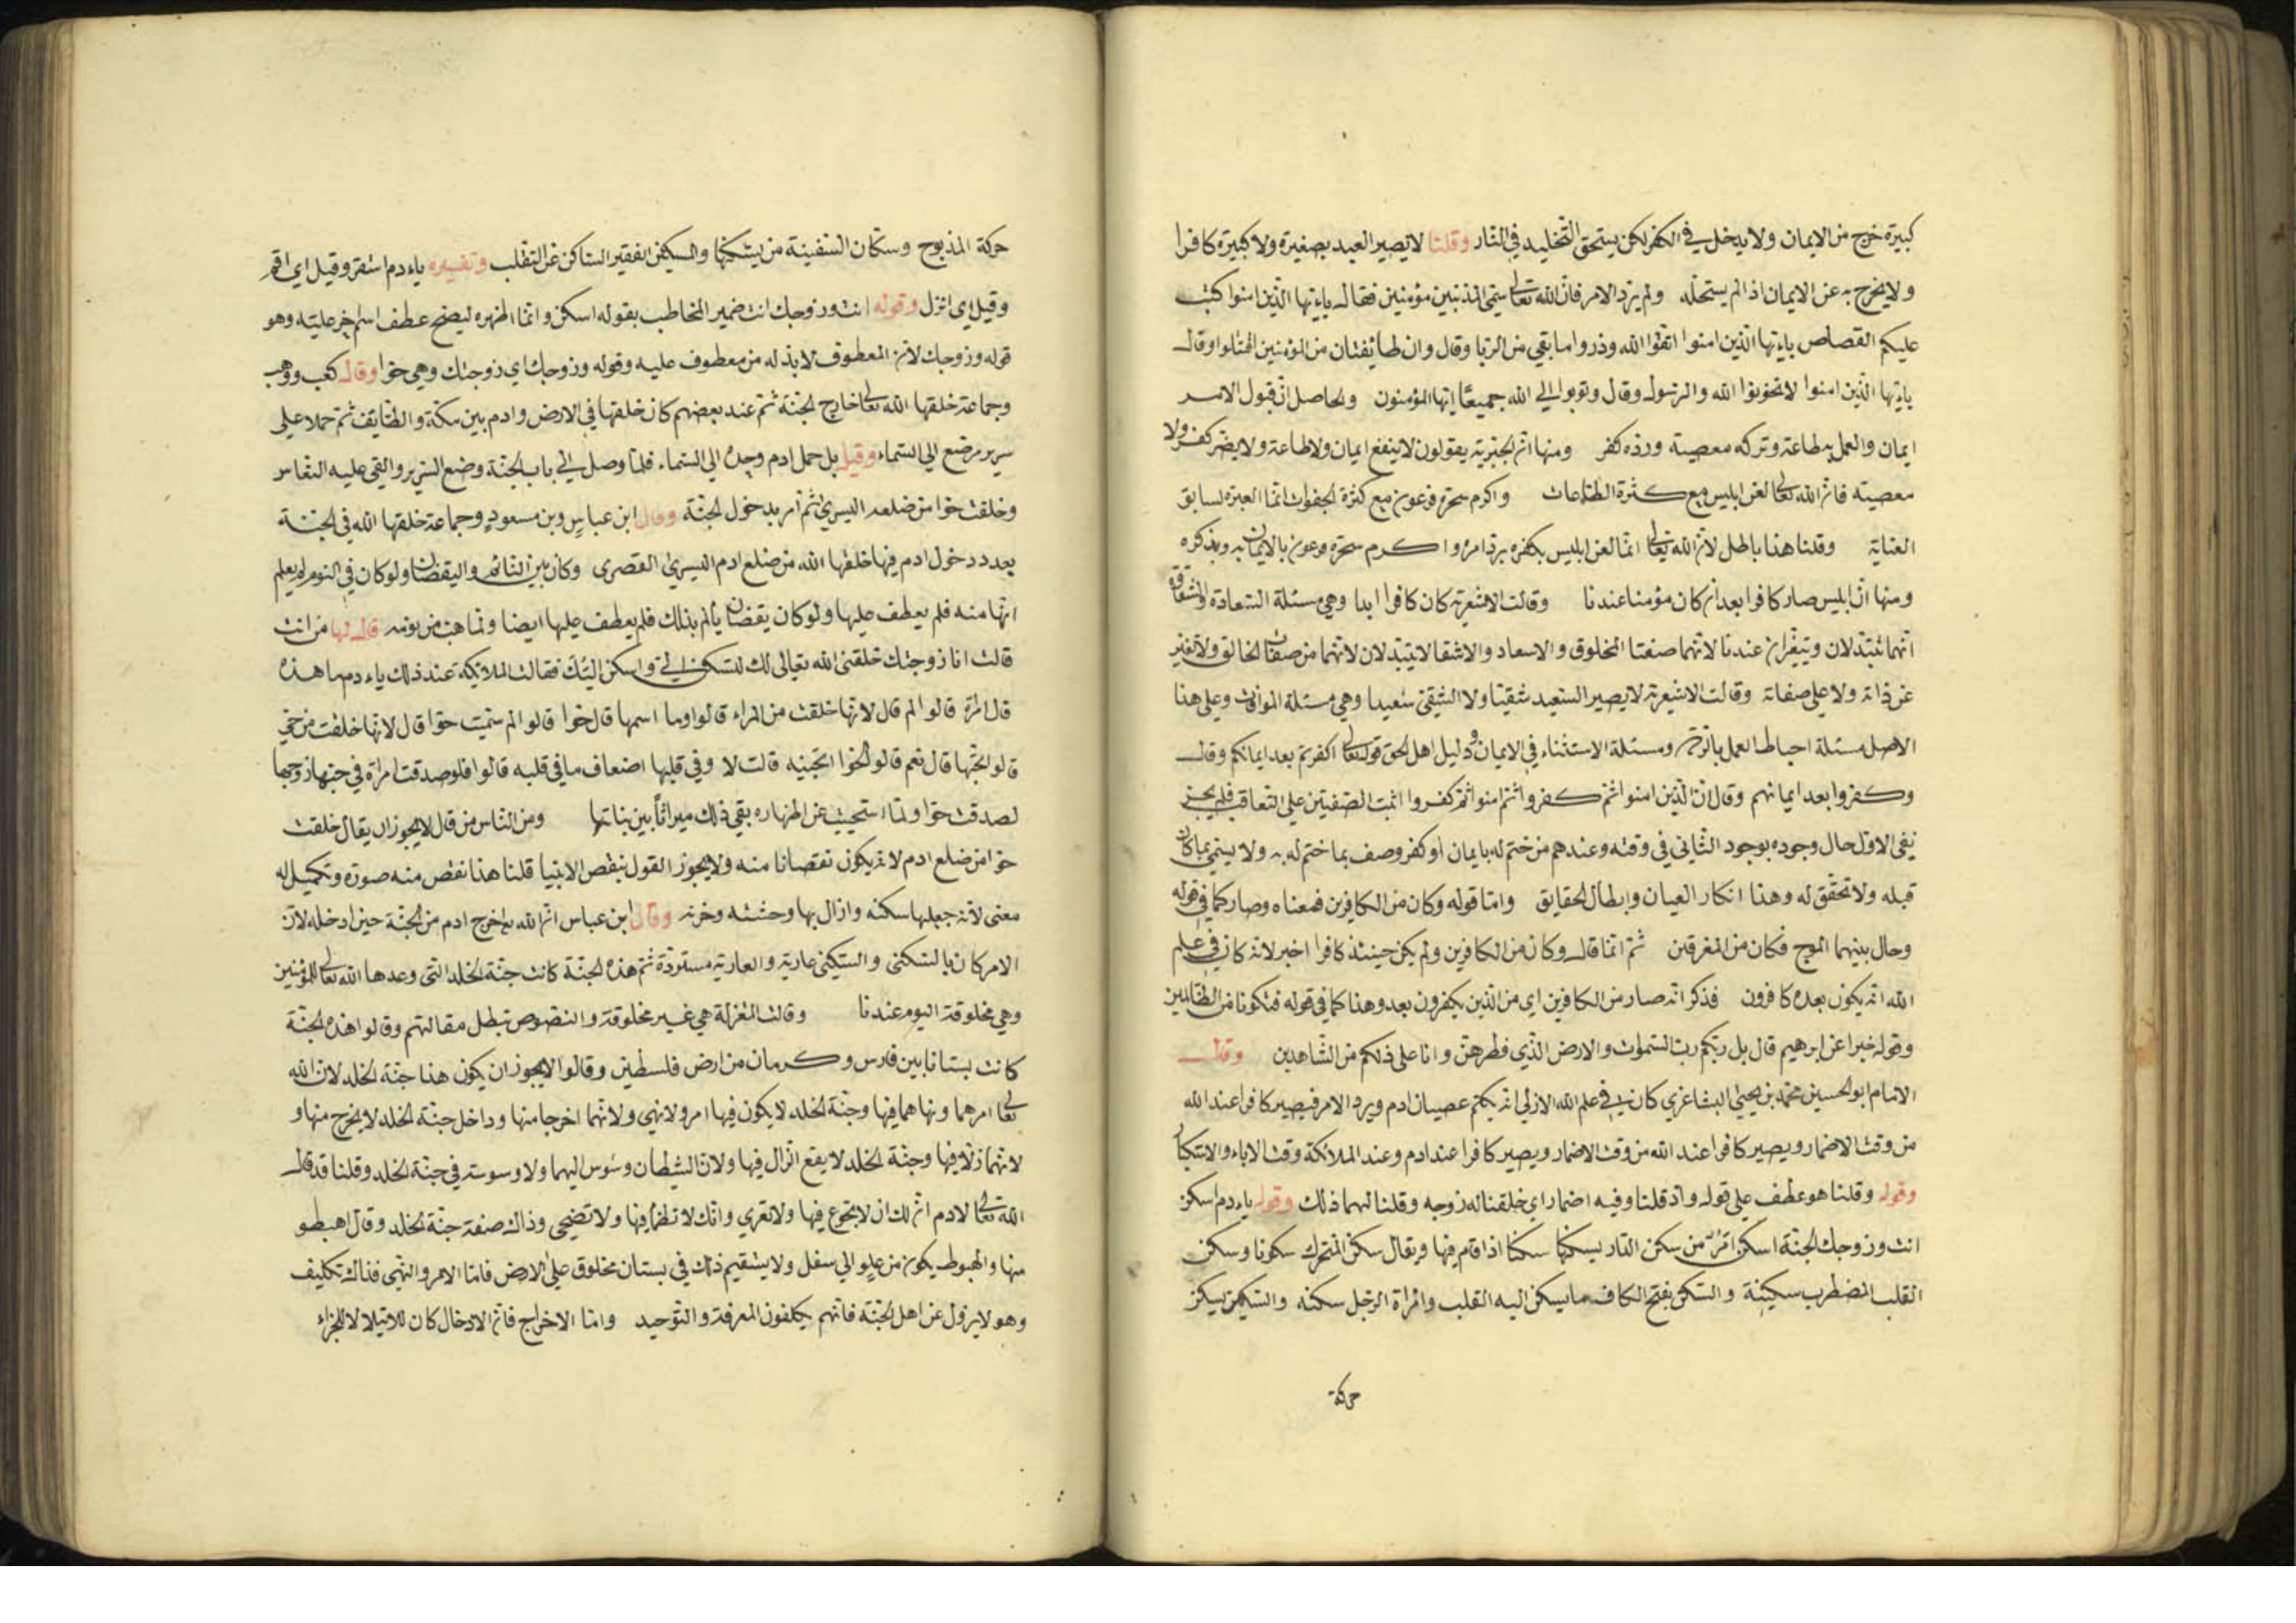 كبيرة خرج من الايمان ولا يدخل في الكفر لكن يستحق التخليد في النار وقلنا لا يصير العبد بصغيرة ولا كبيرة كافرا
ولا يخرج به عن الايمان اذا لم يستحله ولم يرد الامر فان الله تعالى سمى المذنبين مؤمنين فقال ياءيها الذين امنوا كتب
عليكم القصاص ياءيها الذين امنوا اتقوا الله وذروا ما بقي من الربا وقال وان طائفتان من المؤمنين اقتتلوا وقال
ياءيها الذين امنوا لا تخونوا الله والرسول وقال وتوبوا الي الله جميعا ايها المؤمنون والحاصل ان قبول الامر
ايمان والعمل به طاعة وتركه معصية ورده كفر ومنها ان الجبرية يقولون لا ينفع ايمان ولا طاعة ولا يضر كفر ولا
معصية فان الله تعالى لعن ابليس مع كثرة الطاعات واكرم سحرة فرعون مع كثرة الجفوات انما العبرة لسابق
العناية وقلنا هذا باطل لان الله تعالى انما لعن ابليس بكفره برد امره واكرم سحرة فرعون بالايمان به وبذكره
ومنها ان ابليس صار كافرا بعد ان كان مؤمنا عندنا وقالت الاشعرية كان كافرا ابدا وهي مسئلة السعادة والشقاوة
انهما تتبدلان وتتغيران عندنا لانهما صفتا المخلوق والاسعاد والاشقا لا يتبدلان لانهما من صفات الخالق ولا تغير
عن ذاته ولا على صفاته وقالت الاشعرية لا يصير السعيد شقيا ولا الشقي سعيدا وهي مسئلة الموافات وعلى هذا
الاصل مسئلة احباط العمل بالردة ومسئلة الاستثناء في الايمان ودليل اهل الحق قوله تعالى اكفرتم بعد ايمانكم وقال
وكفروا بعد ايمانهم وقال ان الذين امنوا ثم كفروا ثم امنوا ثم كفروا اثبت الصفتين على التعاقب فلم يجز
نفي الاول حال وجوده بوجود الثاني في وقته وعندهم من ختم له بايمان او كفر وصف بما ختم له به ولا يسمى بما كان
قبله ولا تحقق له وهذا انكار العيان وابطال الحقايق واما قوله وكان من الكافرين فمعناه وصار كما في قوله
وحال بينهما الموج فكان من المغرقين ثم انما قال وكان من الكافرين ولم يكن حينئذ كافرا اخبر لانه كان في علم
الله انه يكون بعده كافرون فذكر انه صار من الكافرين اي من الذين يكفرون بعد وهذا كما في قوله فتكونا من الظالمين
وقوله خبرا عن ابرهيم قال بل ربكم رب السموات والارض الذي فطرهن وانا على ذلكم من الشاهدين وقال
الامام ابو الحسين محمد بن يحيى البشاغري كان في علم الله الازلي انه يكتم عصيان ادم ويرد الامر فيصير كافرا عند الله
من وقت الاضمار ويصير كافرا عند الله من وقت الاضمار ويصير كافرا عند ادم وعند الملائكة وقت الاباء والاستكبار
وقوله وقلنا هو عطف على قوله واذ قلنا وفيه اضمار اي خلقنا له زوجه وقلنا لهما ذلك وقوله ياءدم اسكن
انت وزوجك الجنة اسكن امر من سكن الدار يسكنها سكنا اذا قام فيها ويقال سكن المتحرك سكونا وسكن
القلب المضطرب سكينة والسكن بفتح الكاف ما يسكن اليه القلب وامراة الرجل سكنه والسكين يسكن
حركة
حركة المذبوح وسكان السفينة من يسكنها والمسكين الفقير الساكن عن التقلب وتفسيره ياءدم استقر وقيل اي اقم
وقيل اي انزل وقوله انت وزوجك انت ضمير المخاطب بقوله اسكن وانما اظهره ليصح عطف اسم اخر عليه وهو
قوله وزوجك لان المعطوف لا بد له من معطوف عليه وقوله وزوجك اي زوجتك وهي حوا وقال كعب ووهب
وجماعة خلقها الله تعالى خارج الجنة ثم عند بعضهم كان خلقها في الارض وادم بين مكة والطايف ثم حملا على
سرير مرصع الي السماء وقيل بل حمل ادم وحده الي السماء فلما وصل الي باب الجنة وضع السرير والقي عليه النعاس
وخلقت حوا من ضلعه اليسرى ثم امر بدخول الجنة وقال ابن عباس وبن مسعود وجماعة خلقها الله في الجنة
بعد دخول ادم فيها خلقها الله من ضلع ادم اليسرى القصرى وكان بين النائم واليقضان ولو كان في النوم لم يعلم
انها منه فلم يعطف عليها ولو كان يقضان يألم بذلك فلم يعطف عليها ايضا ولما هب من نومه قال لها من انت
قالت انا زوجتك خلقني الله تعالى لك لتسكن الي واسكن اليك فقالت الملائكة عند ذلك ياءدم ما هذه
قال امرة قالوا لم قال لانها خلقت من المراء قالوا وما اسمها قال حوا قالوا لم سميت حوا قال لانها خلقت من حي
قالوا اتحبها قال نعم قالوا لحوا اتحبينه قالت لا وفي قلبها اضعاف ما في قلبه قالوا فلو صدقت امراة في حبها زوجها
لصدقت حوا ولما استحيت عن اظهاره بقي ذلك ميراثا بين بناتها ومن الناس من قال لا يجوز ان يقال خلقت
حوا من ضلع ادم لانه يكون نقصانا منه ولا يجوز القول بنقص الانبيا قلنا هذا نقص منه صورة وتكميل له
معنى لانه جعلها سكنه وازال بها وحشته وحزنه وقال ابن عباس ان الله تع اخرج ادم من الجنة حين ادخله لان
الامر كان بالسكنى والسكنى عارية والعارية مستردة ثم هذه الجنة كانت جنة الخلد التي وعدها الله تعالى للمؤمنين
وهي مخلوقة اليوم عندنا وقالت المعتزلة هي غير مخلوقة والنصوص تبطل مقالتهم وقالوا هذه الجنة
كانت بستانا بين فارس وكرمان من ارض فلسطين وقالوا لا يجوز ان يكون هذا جنة الخلد لان الله
تعالى امرهما ونهاهما فيها وجنة الخلد لا يكون فيها امر ولا نهي ولانهما اخرجا منها وداخل جنة الخلد لا يخرج منها و
لانهما زلا فيها وجنة الخلد لا يقع الزلل فيها ولان الشيطان وسوس اليهما ولا وسوسة في جنة الخلد وقلنا قد قال
الله تعالى لادم ان لك ان لا تجوع فيها ولا تعرى وانك لا تظمأ فيها ولا تضحى وذاك صفة جنة الخلد وقال اهبطو
منها والهبوط يكون من علو الي سفل ولا يستقيم ذلك في بستان مخلوق على الارض فاما الامر والنهي فذاك تكليف
وهو لا يزول عن اهل الجنة فانهم يكلفون المعرفة والتوحيد واما الاخراج فان الادخال كان للابتلا لا للجزاء